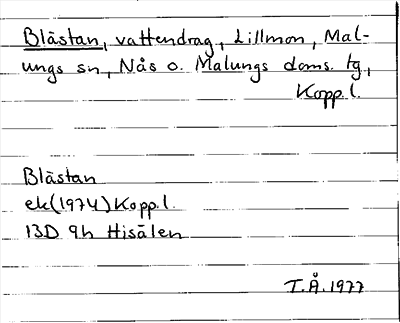 Blästan, vattendrag, Lillmon, Mal-
ungs sn, Nås o. Malungs doms. tg,
Kopp.l.
Blästan
ek(1974)Kopp.l.
13D 9h Hisälen
T.Å.1977